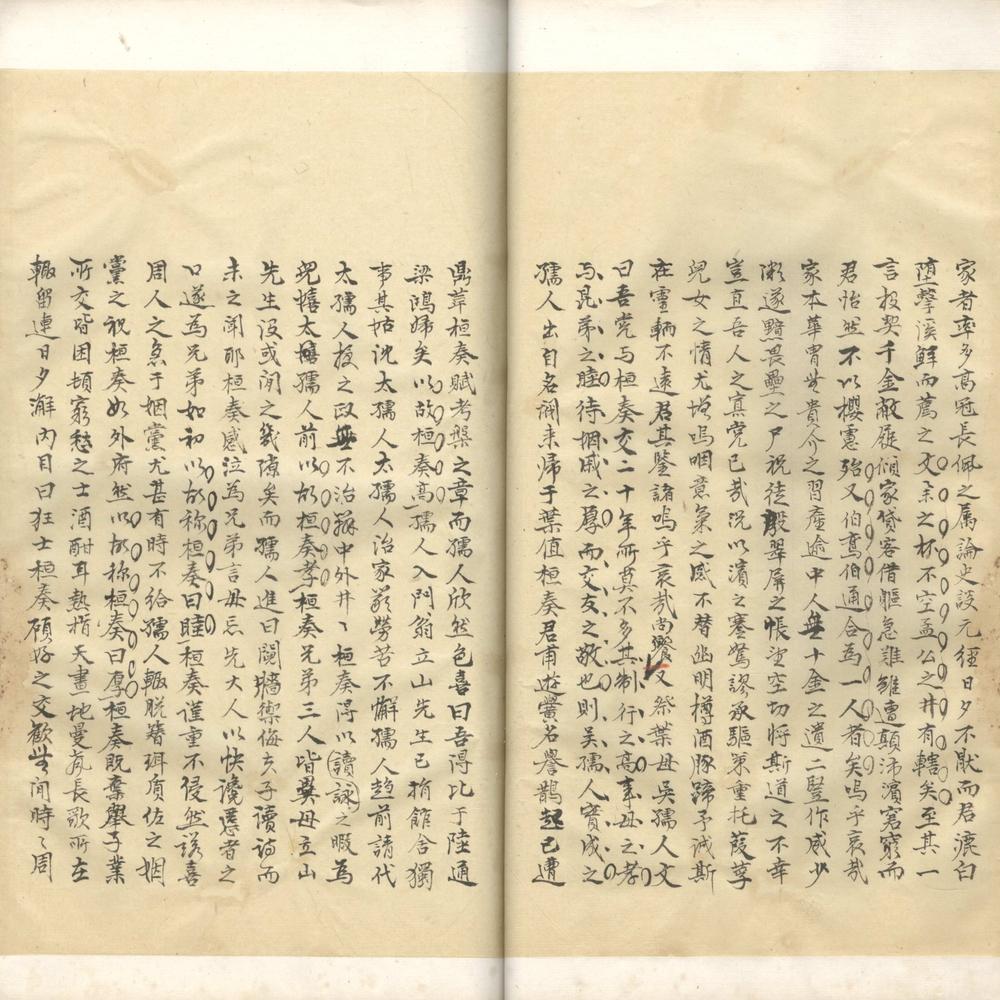 家者率多高冠長佩之属論史談元經日夕不猒而君漉白
堕擊溪鮮而薦之文余之杯不空孟公之井有轄矣至其一
言投契千金敝屣傾家貸客借軀急難雖遭顛沛濵窘窮而
君怡然不以櫻憲殆又伯鸞伯通合為一人者矣嗚乎哀哉
家本華胄世貴介之習產逾中人無十金之道二豎作威少
微遂黯畏壘之尸祝徒殷翠屏之帳望空切將斯道之不幸
豈直吾人之真宪已哉況以濵之蹇駑謬承驅策重托葭莩
兒女之情尤增嗚咽意氣之感不替幽明樽酒豚蹄予誠斯
在靈輀不遠君其鑒諸嗚乎哀哉尚饗又祭葉母吳孺人文
曰吾党与桓奏交二十年所莫不多其制行之高事母之孝
与昆弟之睦待姻戚之厚而交友之敬也則吴孺人實成之
孺人出自名閥来歸于葉值桓奏君甫遊黌名譽鵲起已遭
鼎革桓奏賦考槃之章而孺人欣然色喜曰吾得比于陸通
梁鴻婦矣以故桓奏高孺人入門翁立山先生已捐館舎獨
事其姑沈太孺人太孺人治家嚴勞苦不懈孺人趋前請代
太孺人授之政無不治辦中外井丶桓奏得以讀詠之暇為
兒嬉太孺人前以故桓奏孝桓奏兄弟三人皆異母立山
先生没或間之幾隙矣而孺人進曰鬩墻禦侮夫子讀詩而
未之聞耶桓奏感泣為兄弟言毋忘先大人以快讒慝者之
口遂為兄弟如初以故称桓奏曰睦桓奏谨重不侵然諾喜
周人之急于姻黨尤甚有時不给孺人輙脱簪珥質佐之姻
黨之視桓奏如外府然以故称桓奏曰厚桓奏既棄舉子業
所交皆困頓窮愁之士酒酣耳熱指天畫地曼声長歌所在
輙留連日夕澥内目曰狂士桓奏顾好之交歡世间時丶周